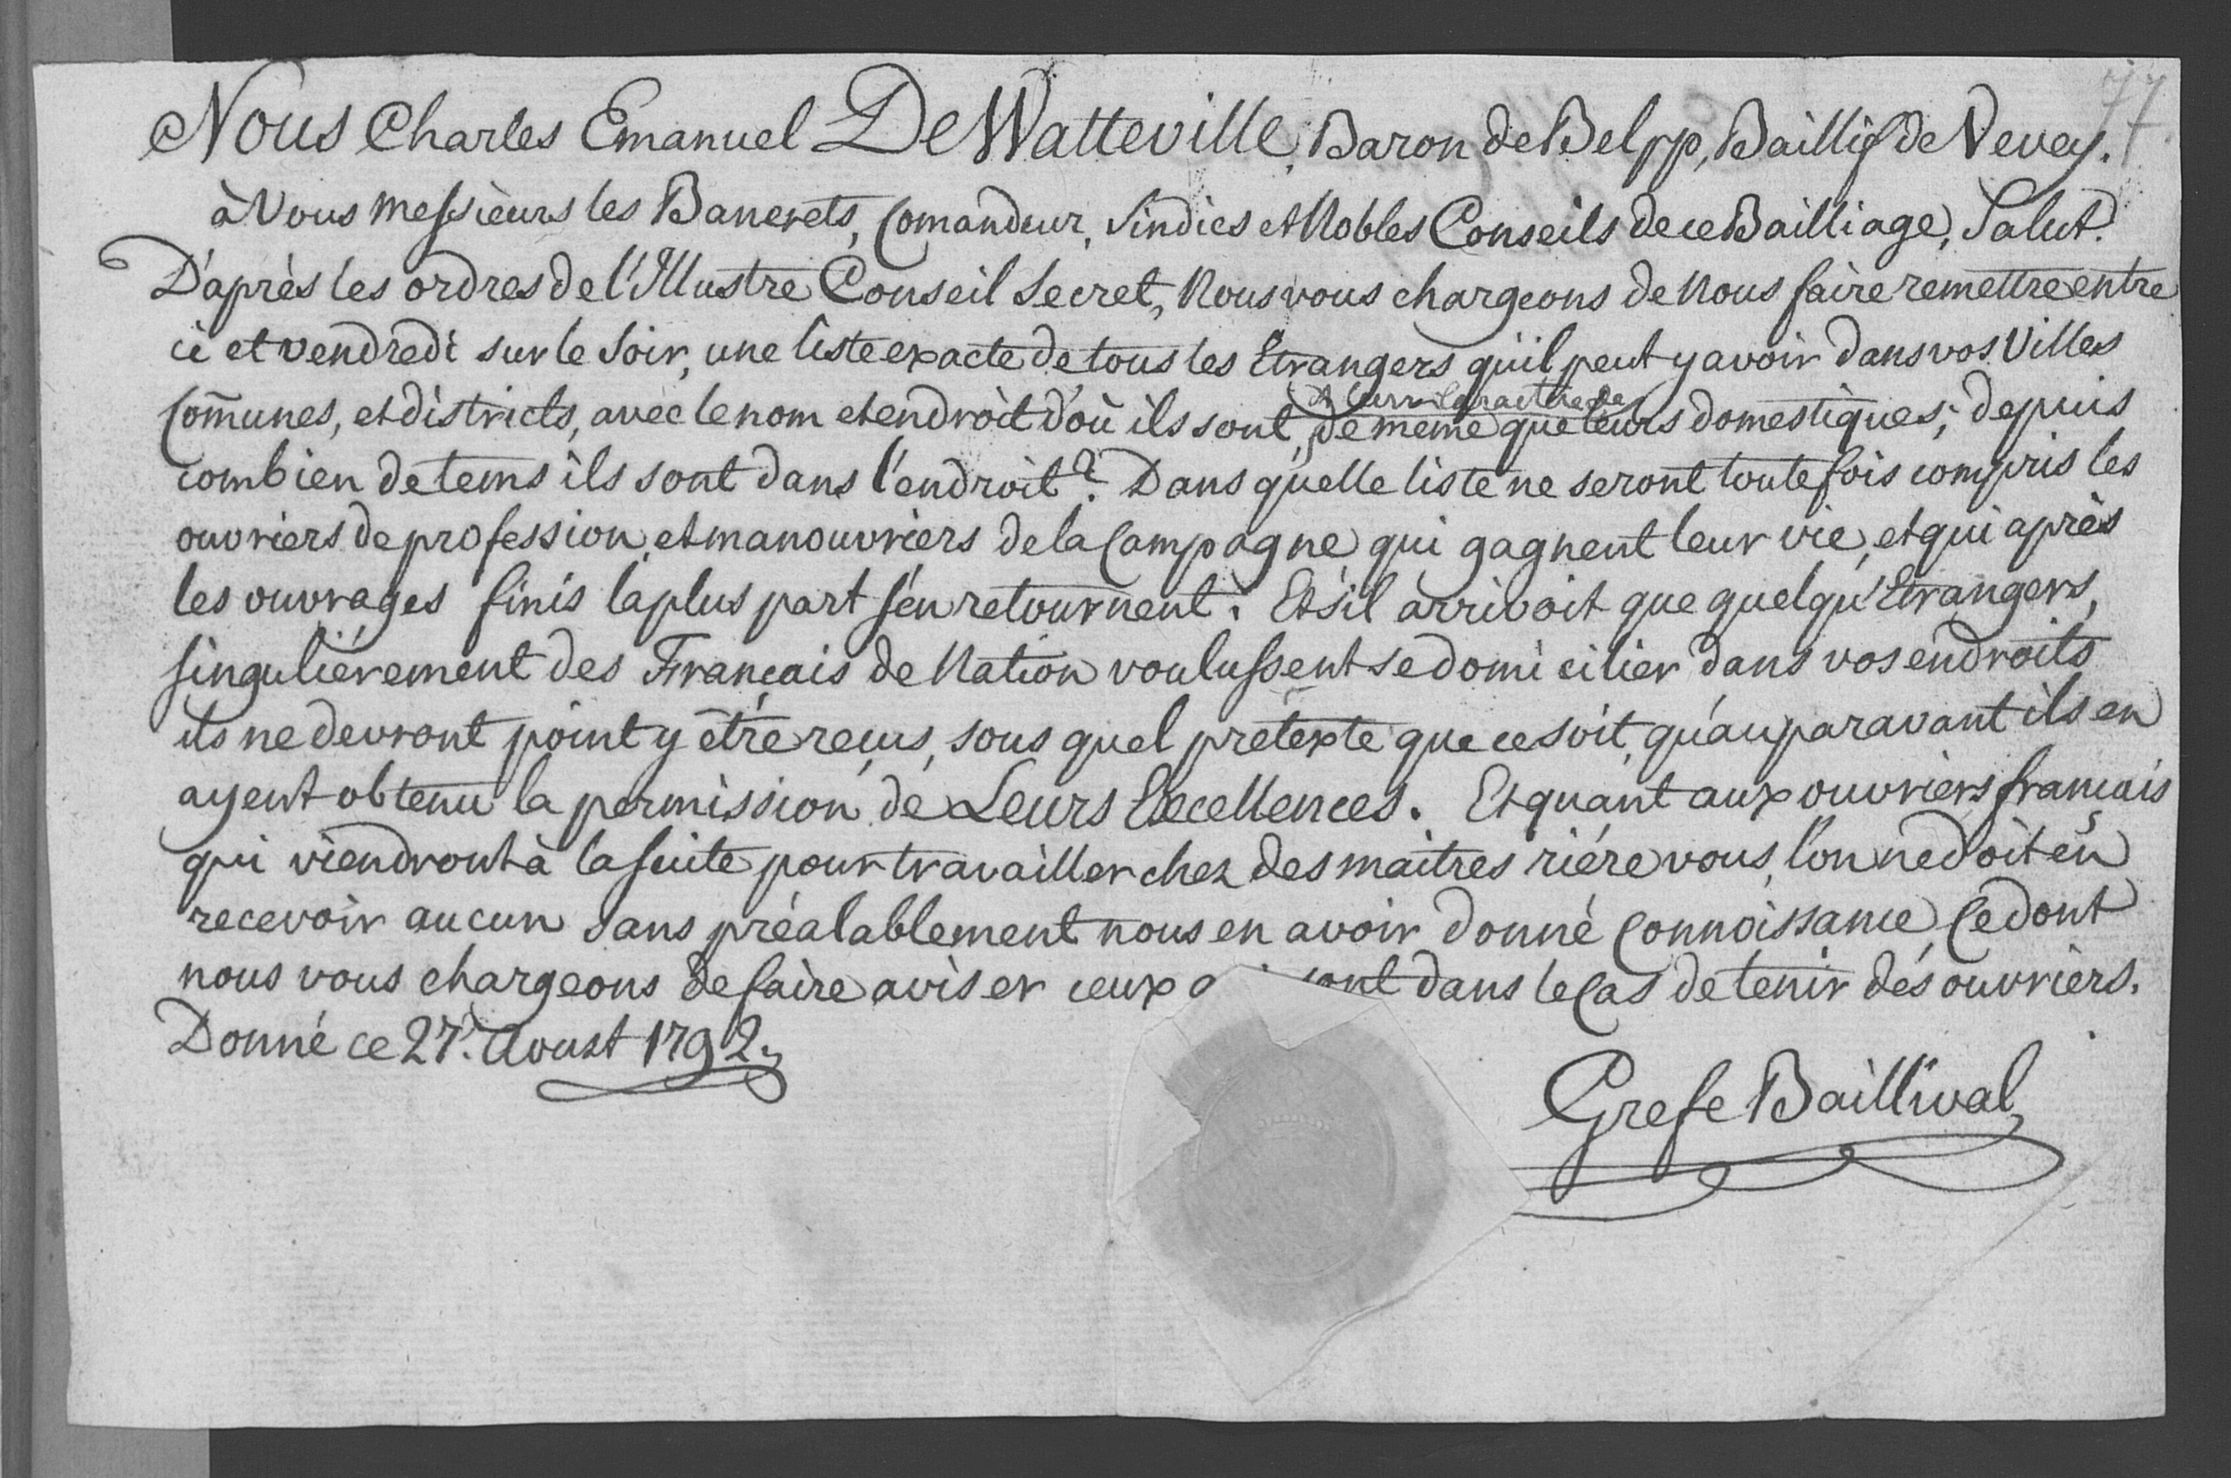 77.
Nous Charles Emanuel De Watteville, Baron de Belpp, Baillif de Vevey.
à Vous Messieurs les Banerets, Comandeur, Sindics et Nobles Conseils de ce Bailliage, Salut.
D'après les ordres de l'Illustre Conseil Secret, Nous vous chargeons de Nous faire remettre entre
ci et vendredi sur le Soir, une liste exacte de tous les Etrangers qu'il peut y avoir dans vos Villes
et leurs Caractères
Com̄unes, et districts, avec le nom et endroit d'où ils sont, de meme que leurs domestiques; depuis
combien de tems ils sont dans l'endroit? Dans quelle liste ne seront toute fois compris les
ouvriers de profession, et manouvriers de la Campagne, qui gagnent leur vie, et qui après
les ouvrages finis la plus part s'en retournent. Et s'il arrivoit que quelqu'Etrangers,
singuliérement des Français de Nation voulussent se domicilier dans vos endroits
ils ne devront point y être reçus, sous quel prétexte que ce soit, qu'auparavant ils en
ayent obtenu la permission de Leurs Excellences. Et quant aux ouvriers français
qui viendront à la suite pour travailler chez des maitres riére vous, l'on ne doit en
recevoir aucun sans préalablement nous en avoir donné Connoissance, Ce dont
nous vous chargeons de faire aviser ceux sont dans le Cas de tenir des ouvriers.
Donné ce 27. Aoust 1792.
Grefe Baillival